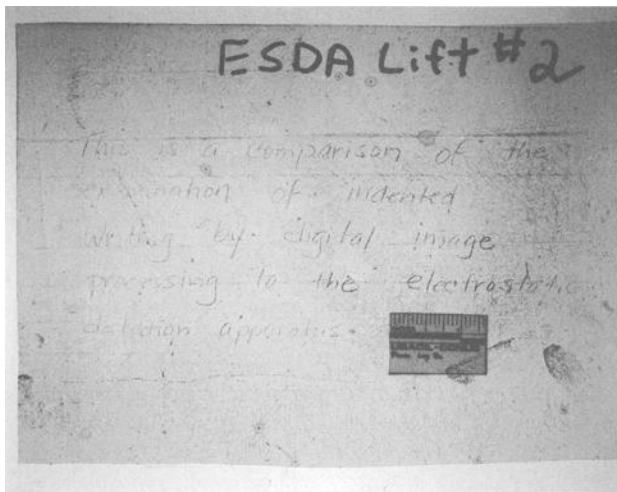 ESDA Lift #2
This is a comparison of the
examination of indented
writing by digital image
processing to the electrostatic
detection apparatus.